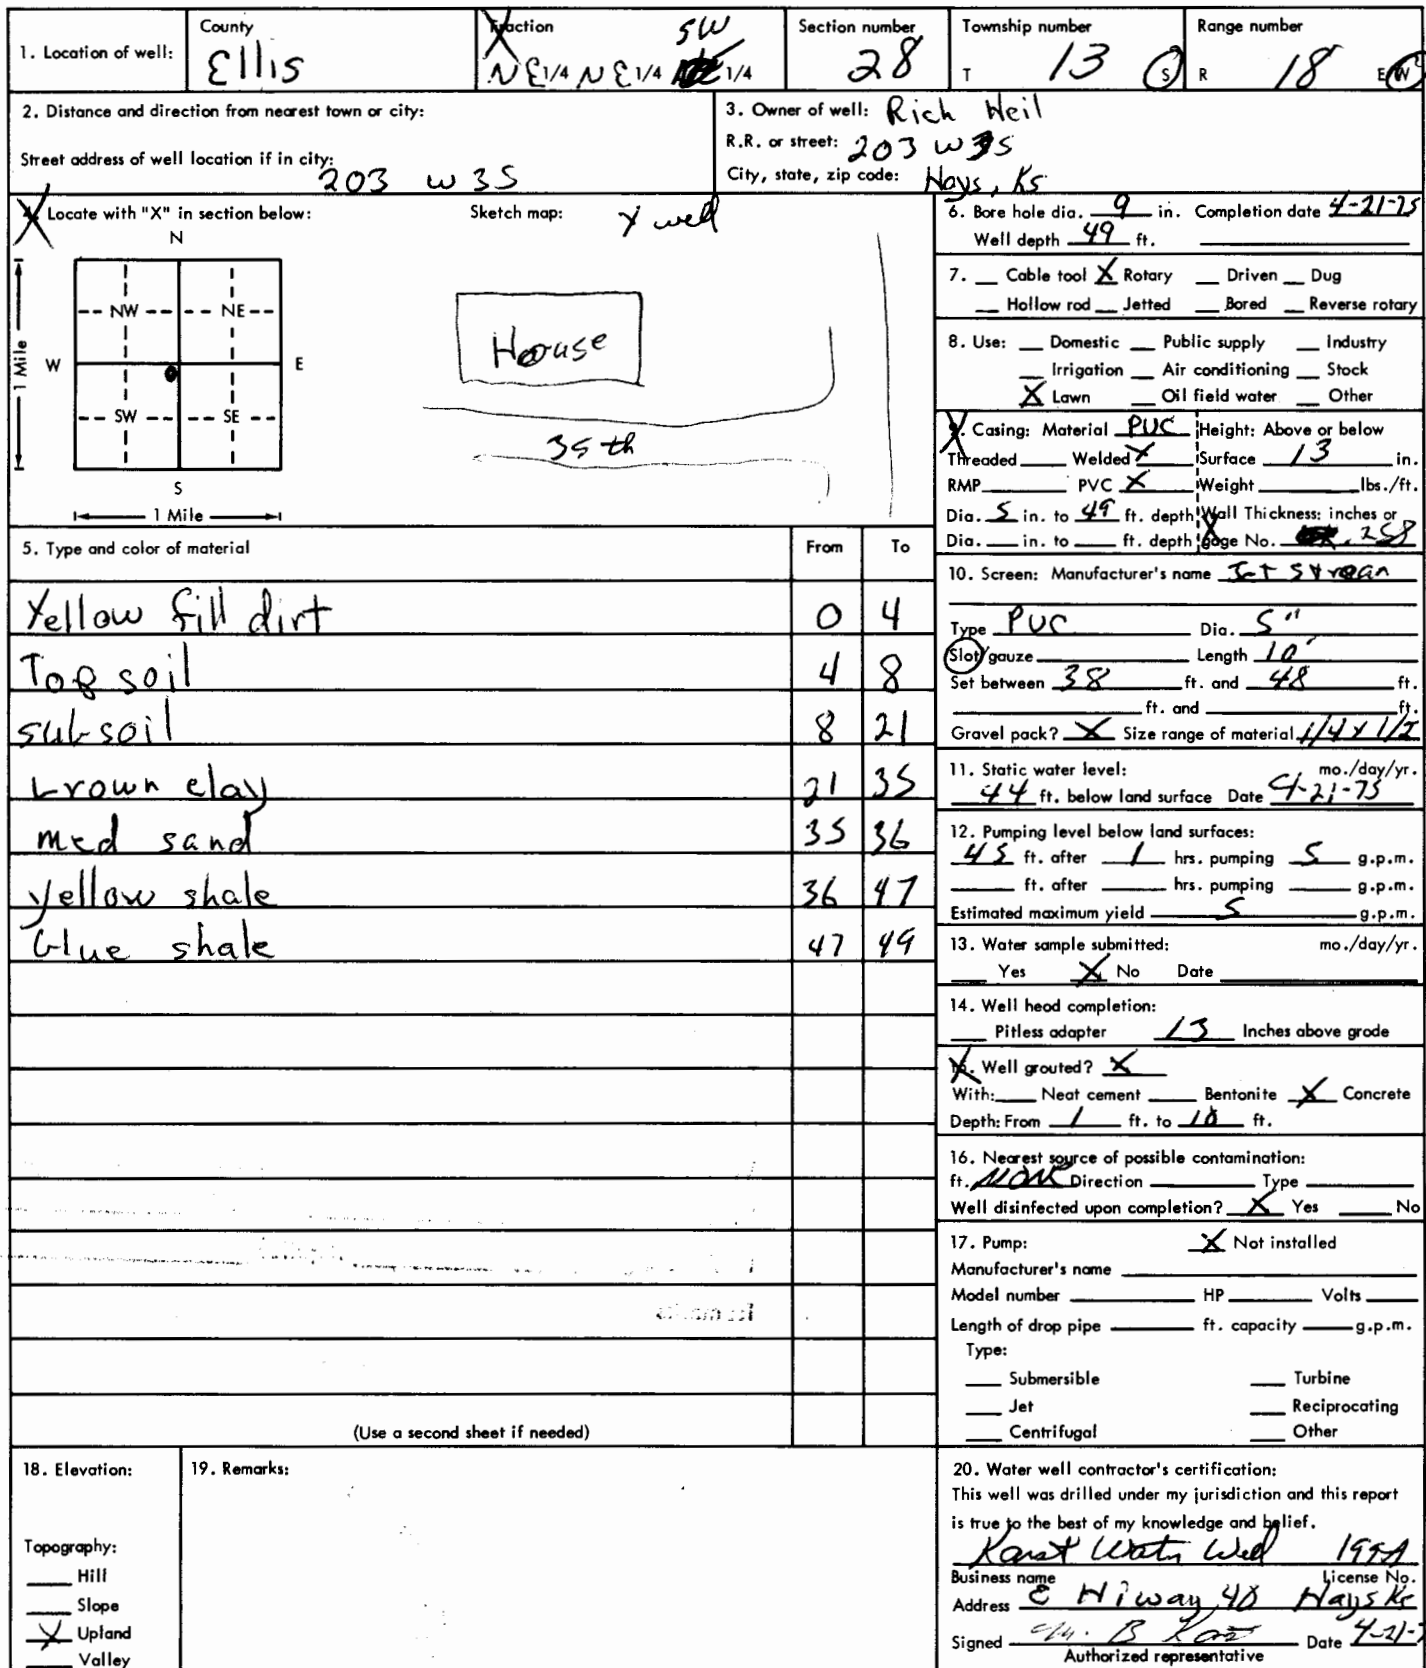 1. Location of well: County Ellis Fraction NE 1/4 NE 1/4 SW 1/4 Section number 28 Township number T 13 S Range number R 18 E W
2. Distance and direction from nearest town or city:
Street address of well location if in city: 203 W 35
3. Owner of well: Rich Weil
R.R. or street: 203 W 35
City, state, zip code: Hays, Ks
4. Locate with "X" in section below:
N
NW NE
W E
SW SE
S
1 Mile
1 Mile
Sketch map:
X well
House
35th
5. Type and color of material From To
Yellow fill dirt 0 4
Top soil 4 8
sub soil 8 21
brown clay 21 35
med sand 35 36
yellow shale 36 47
blue shale 47 49
(Use a second sheet if needed)
6. Bore hole dia. 9 in. Completion date 4-21-75
Well depth 49 ft.
7. Cable tool X Rotary Driven Dug
Hollow rod Jetted Bored Reverse rotary
8. Use: Domestic Public supply Industry
Irrigation Air conditioning Stock
X Lawn Oil field water Other
9. Casing: Material PVC Height: Above or below
Threaded Welded X Surface 13 in.
RMP PVC X Weight lbs./ft.
Dia. 5 in. to 49 ft. depth Wall Thickness: inches or
Dia. in. to ft. depth gage No. .258
10. Screen: Manufacturer's name Jet Stream
Type PVC Dia. 5"
Slot/gauze Length 10'
Set between 38 ft. and 48 ft.
ft. and ft.
Gravel pack? X Size range of material 1/4 x 1/2
11. Static water level: mo./day/yr.
44 ft. below land surface Date 4-21-75
12. Pumping level below land surfaces:
45 ft. after 1 hrs. pumping 5 g.p.m.
ft. after hrs. pumping g.p.m.
Estimated maximum yield 5 g.p.m.
13. Water sample submitted: mo./day/yr.
Yes X No Date
14. Well head completion:
Pitless adapter 13 Inches above grade
15. Well grouted? X
With: Neat cement Bentonite X Concrete
Depth: From 1 ft. to 10 ft.
16. Nearest source of possible contamination:
ft. None Direction Type
Well disinfected upon completion? X Yes No
17. Pump: X Not installed
Manufacturer's name
Model number HP Volts
Length of drop pipe ft. capacity g.p.m.
Type:
Submersible Turbine
Jet Reciprocating
Centrifugal Other
18. Elevation:
Topography:
Hill
Slope
X Upland
Valley
19. Remarks:
20. Water well contractor's certification:
This well was drilled under my jurisdiction and this report
is true to the best of my knowledge and belief.
Karst Water Well 199A
Business name License No.
Address E Hiway 40 Hays Ks
Signed B Karst Date 4-21-7
Authorized representative